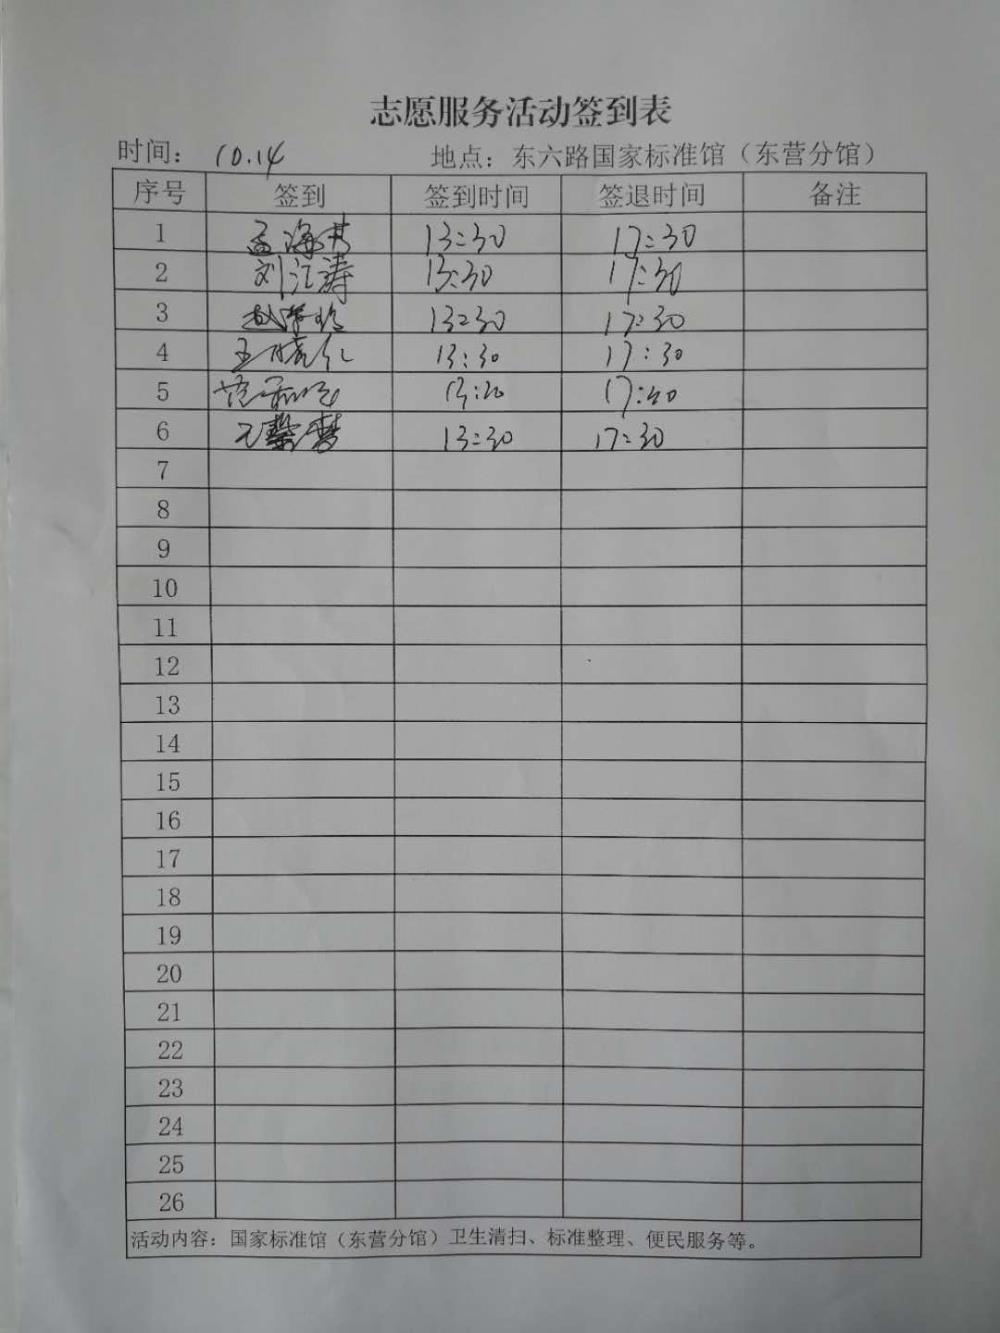 志愿服务活动签到表
时间： 10.14 地点：东六路国家标准馆（东营分馆）
序号 签到 签到时间 签退时间 备注
1 孟海 13:30 17:30
2 刘江涛 13:30 17:30
3 赵 13:30 17:30
4 王晓仁 13:30 17:30
5 范 17:40
6 王梦 13:30 17:30
7
8
9
10
11
12
13
14
15
16
17
18
19
20
21
22
23
24
25
26
活动内容：国家标准馆（东营分馆）卫生清扫、标准整理、便民服务等。